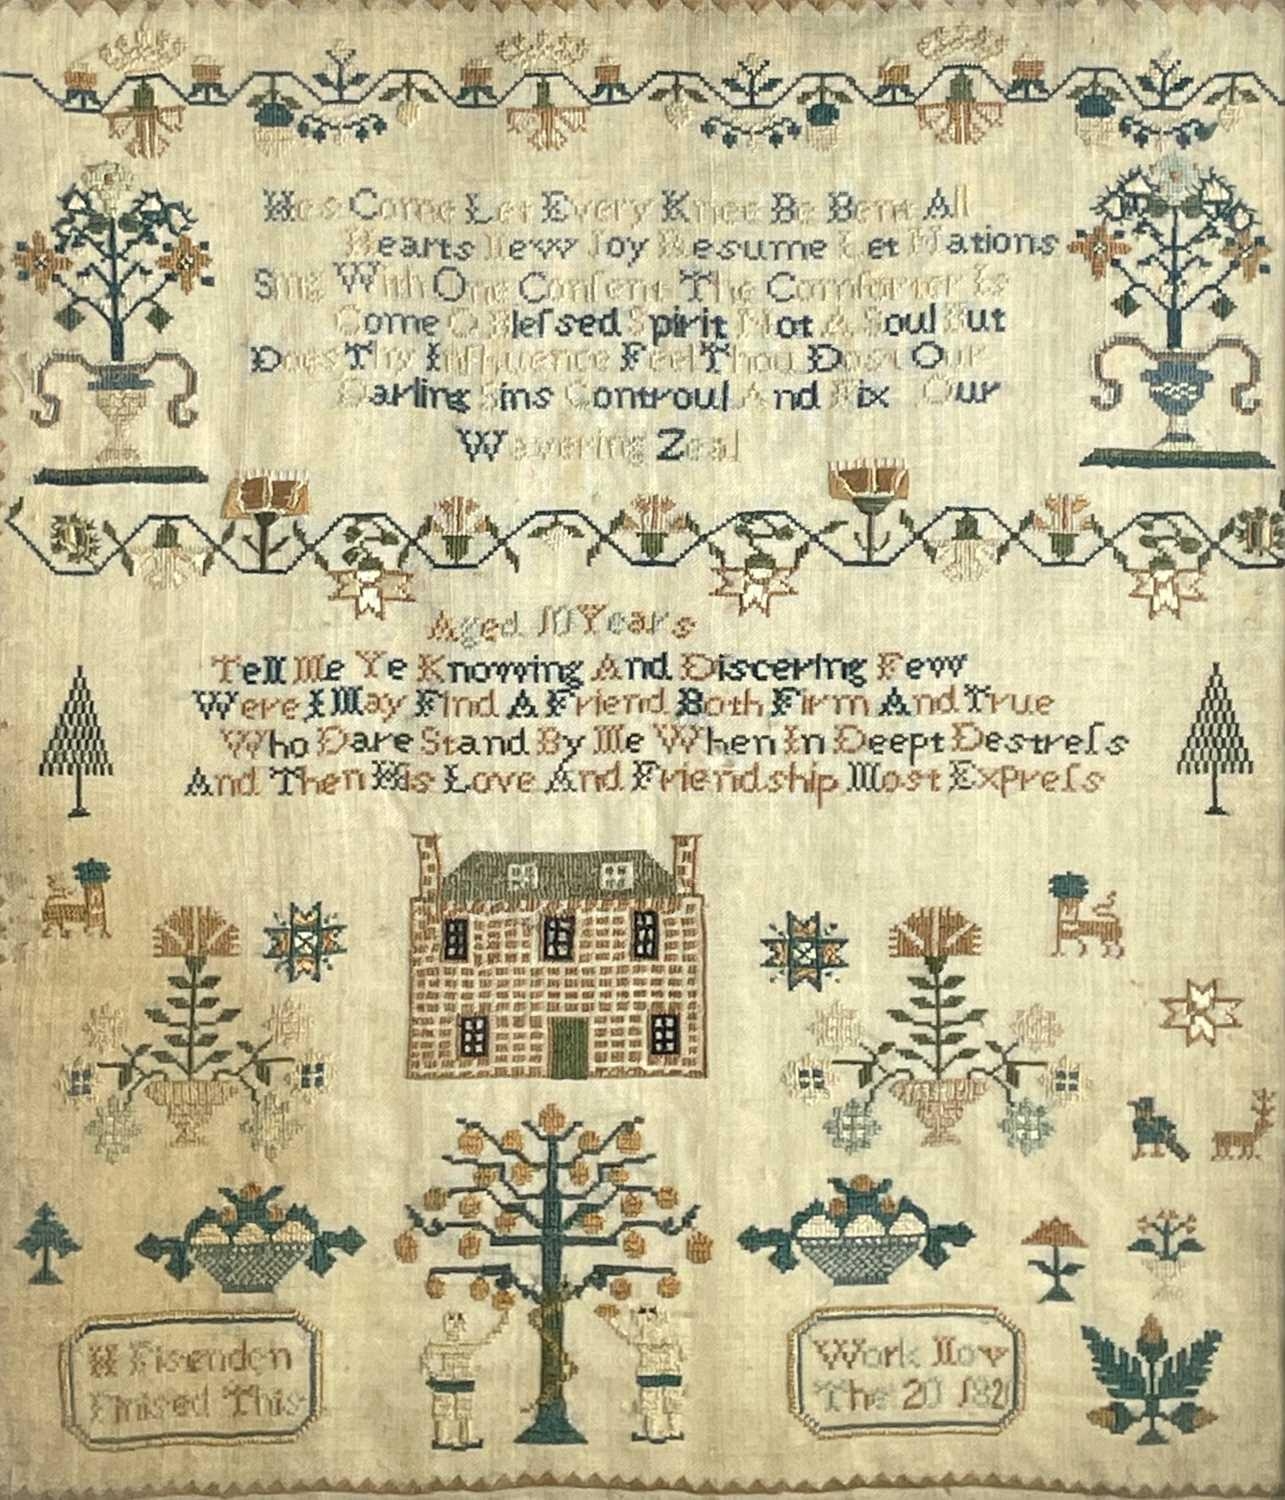 He s Come Let Every Knee Be Bent All
Hearts New Joy Resume Let Nations
Sing With One Conſent The Comforter Is
Come O Bleſsed Spirit Not A Soul But
Does Thy Influence Feel Thou Dost Our
Darling Sins Controul And Fix Our
Wavering Zeal
Aged 10 Years
Tell Me Ye Knowing And Discering Few
Were I May Find A Friend Both Firm And True
Who Dare Stand By Me When In Deept Destreſs
And Then His Love And Friendship Most Expreſs
H Fisenden
Finised This
Work Nov
The 20 182